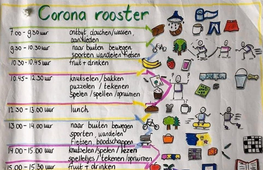 Corona rooster
7.00 - 9.30 uur ontbijt, douchen/wassen,
aankleden
9.30 - 10.30 uur naar buiten bewegen
sporten wandelen
10.30 - 10.45 uur fruit + drinken
10.45 - 12.30 uur knutselen / bakken
puzzelen / tekenen
spelen / spellen / opruimen
12.30 - 13.00 uur lunch
13.00 - 14.00 uur naar buiten bewegen
sporten, wandelen
fietsen, boodschappen
14.00 - 15.00 uur knutselen / spelen / lezen
spelletjes / tekenen / opruimen
15.00 - 15.30 uur fruit + drinken